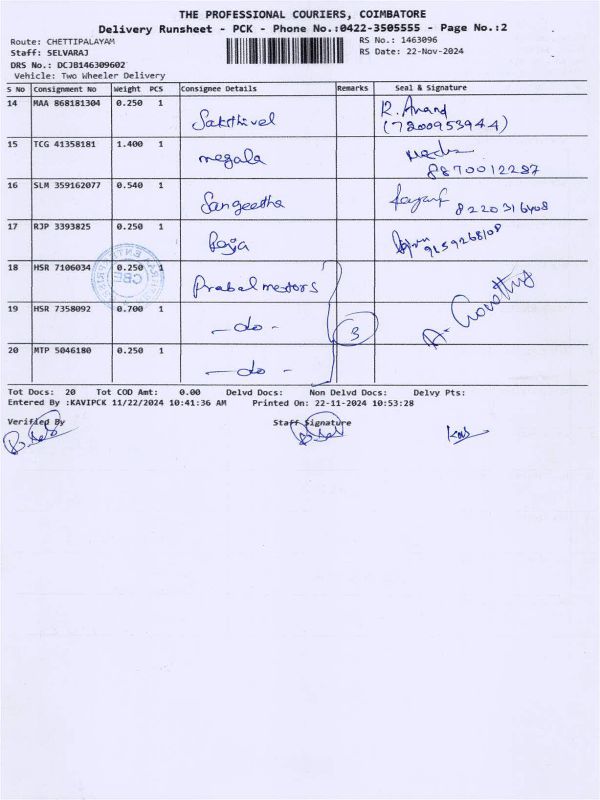 THE PROFESSIONAL COURIERS, COIMBATORE
Delivery Runsheet - PCK - Phone No.:0422-3505555 - Page No.:2
Route: CHETTIPALAYAM RS No.: 1463096
Staff: SELVARAJ RS Date: 22-Nov-2024
DRS No.: DCJ8146309602
Vehicle: Two Wheeler Delivery
S No Consignment No Weight PCS Consignee Details Remarks Seal & Signature
14 MAA 868181304 0.250 1 Sakthivel R. Anand
(7200953944)
15 TCG 41358181 1.400 1 megala
8870012287
16 SLM 359162077 0.540 1 Sangeetha 8220316408
17 RJP 3393825 0.250 1 Raja 9159268108
18 HSR 7106034 0.250 1 Prabal motors
19 HSR 7358092 0.700 1 - do - 3
20 MTP 5046180 0.250 1 - do -
CBE
Tot Docs: 20 Tot COD Amt: 0.00 Delvd Docs: Non Delvd Docs: Delvy Pts:
Entered By :KAVIPCK 11/22/2024 10:41:36 AM Printed On: 22-11-2024 10:53:28
Verified By Staff Signature